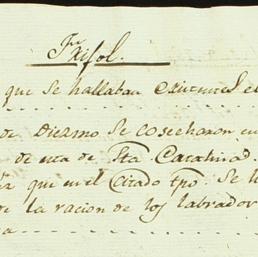 Frixol.
que se hallaban existentes e
de Diezmo se cosecharon en
de uta de Sta. Catalina d.
que en el Citado tpo. Se le
de la racion de los labrador
a